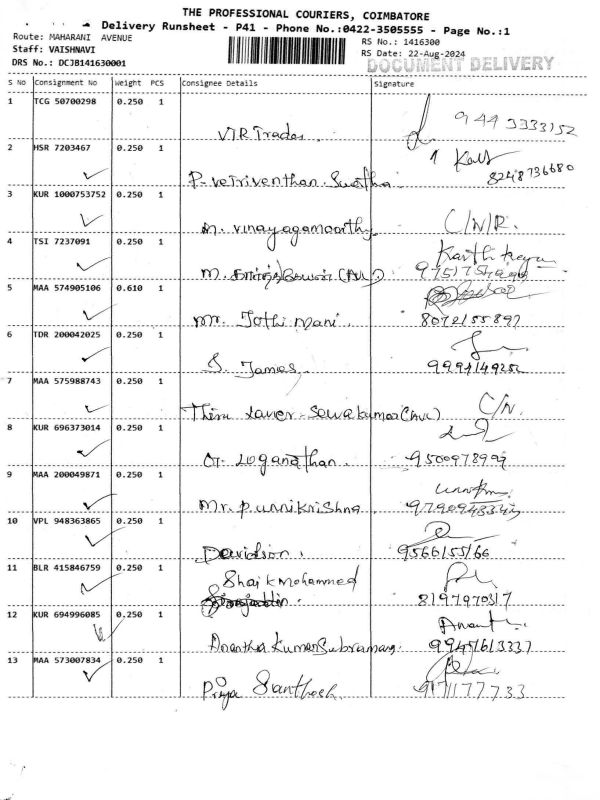 THE PROFESSIONAL COURIERS, COIMBATORE
Delivery Runsheet - P41 - Phone No.:0422-3505555 - Page No.:1
Route: MAHARANI AVENUE
RS No.: 1416300
Staff: VAISHNAVI
RS Date: 22-Aug-2024
DRS No.: DCJB141630001
DOCUMENT DELIVERY
S No Consignment No Weight PCS Consignee Details Signature
1 TCG 50700298 0.250 1
VTR Trades 944 3333152
2 HSR 7203467 0.250 1
P. Vetriventhan. Swatha 8248736680
3 KUR 1000753752 0.250 1
M. Vinayagamoorthy C/N/R.
4 TSI 7237091 0.250 1 Karthikeyan
M.
5 MAA 574905106 0.610 1
Mr. Jothi Mani. 8072155897
6 TDR 200042025 0.250 1
S. James 9994149252
7 MAA 575988743 0.250 1
Thiru Xavier Selvakumar C/N.
8 KUR 696373014 0.250 1
G. Loganathan. 9500978999
9 MAA 200049871 0.250 1
Mr. P. Unnikrishna
10 VPL 948363865 0.250 1
Davidson. 9566155166
11 BLR 415846759 0.250 1 Shaik Mohammed
8197970317
12 KUR 694996085 0.250 1 Ananth
Anantha Kumar Subramani. 9947613337
13 MAA 573007834 0.250 1
Priya Santhosh 9171177733